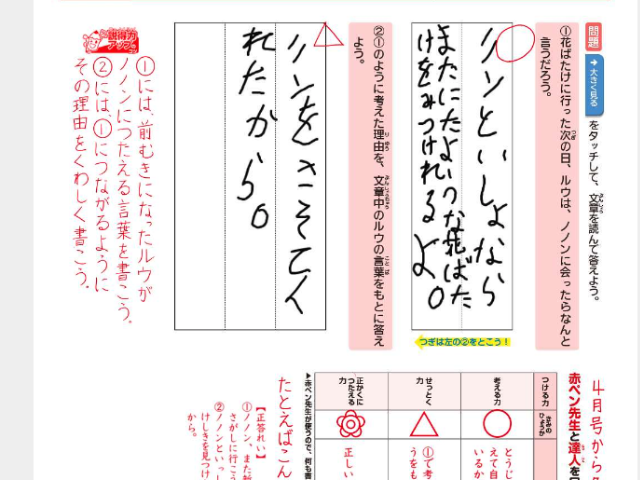 問題
➜大きく見る
をタッチして、文章を読んで答えよう。
①花ばたけに行った次の日、ルウは、ノノンに会ったらなんと
言うだろう。
ノンといしょなら
またにたよいつな花ばた
けをみつけれるよ。
つぎは左の②をとこう!
②①のように考えた理由を、文章中のルウの言葉をもとに答え
よう。
ノンをさそてく
れたから。
説得力
アップ
①には、前むきになったルウが
ノノンにつたえる言葉を書こう。
②には、①につながるように
その理由をくわしく書こう。
4月号から
赤ペン先生と達人を
つける力
考える力
せっとく力
正かくにつたえる力
正しい
たとえばこん
【正答れい】
①ノノン、また
さがしに行こう
②ノノンといっし
けしきを見つけ
から。